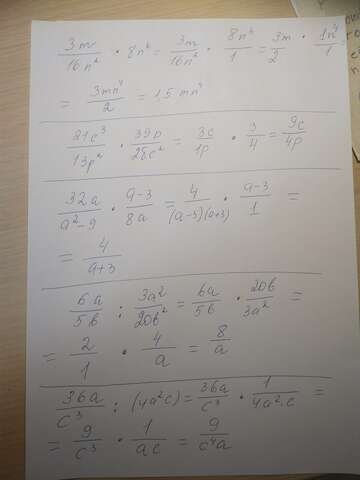 3m/16n² · 8n⁶ = 3m/16n² · 8n⁶/1 = 3m/2 · 1n⁴/1
= 3mn⁴/2 = 1,5 mn⁴
21c³/13p² · 39p/28c² = 3c/1p · 3/4 = 9c/4p
32a/a²-9 · a-3/8a = 4/(a-3)(a+3) · a-3/1 =
= 4/a+3
6a/5b : 3a²/20b² = 6a/5b · 20b/3a² =
= 2/1 · 4/a = 8/a
36a/c³ : (4a²c) = 36a/c³ · 1/4a²·c =
= 9/c³ · 1/ac = 9/c⁴a